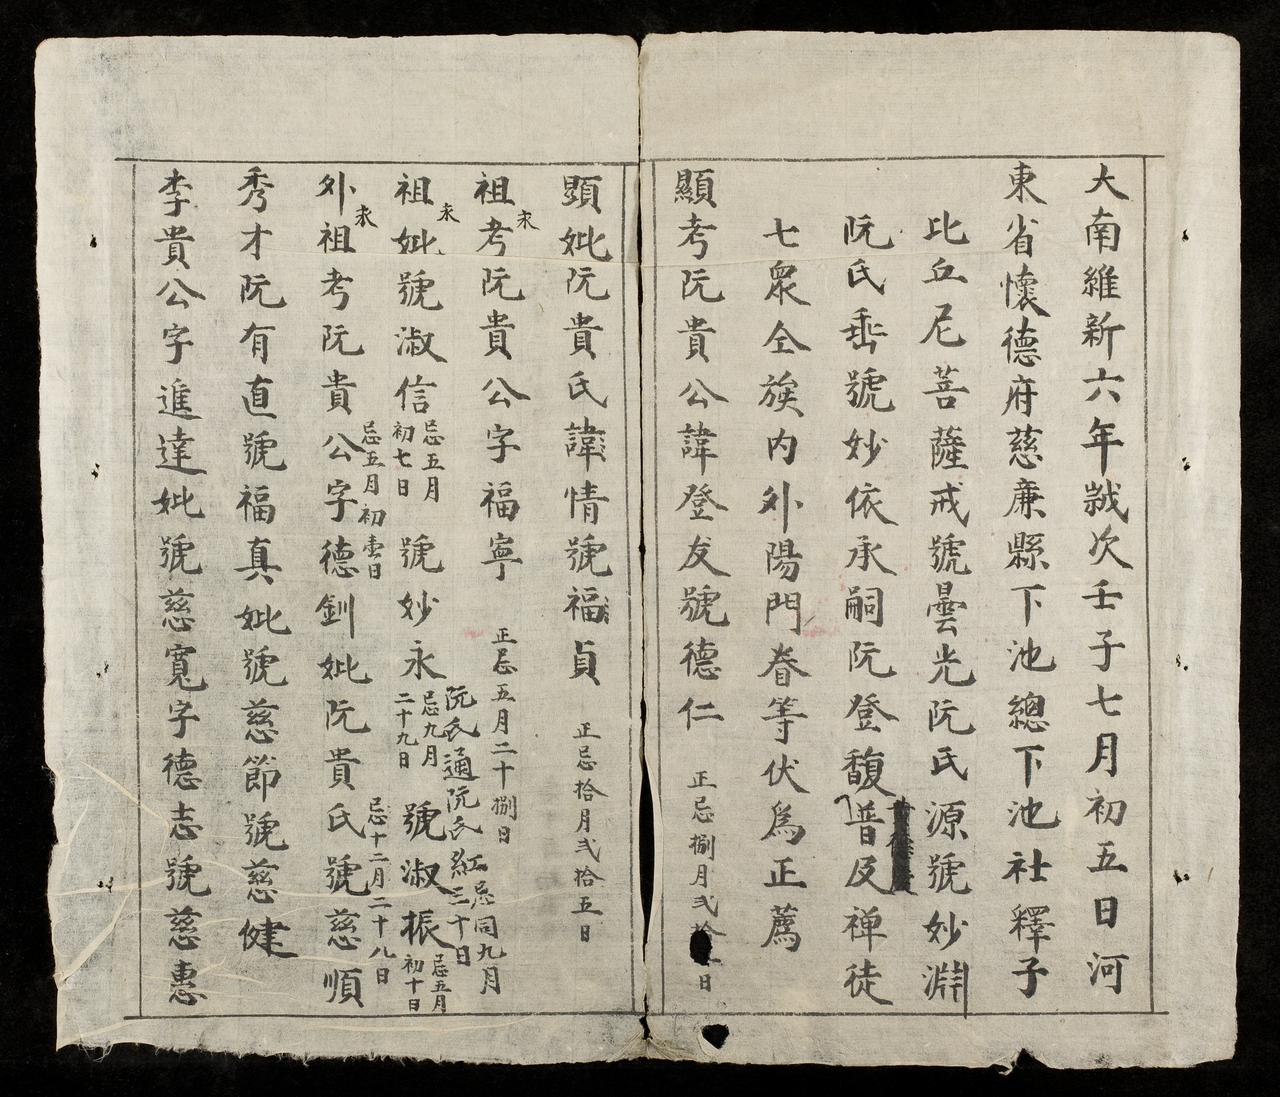 大南維新六年歲次壬子七月初五日河
東省懷德府慈廉縣下池總下池社釋子
比丘尼菩薩戒號曇光阮氏源號妙淵
阮氏垂號妙依承嗣阮登馥普及禅徒
七衆全族内外陽門眷等伏爲正薦
顯考阮貴公諱登友號德仁 正忌捌月弍拾日
顯妣阮貴氏諱情號福貞 正忌拾月弍拾五日
祖考阮貴公字福寧 正忌五月二十捌日
阮氏通阮氏紅忌同九月三十日
祖妣號淑信 忌五月初七日 號妙永 忌九月二十九日 號淑振 忌五月初十日
外祖考阮貴公字德釧妣阮貴氏號慈順
忌五月初壹日 忌十二月二十八日
秀才阮有直號福真妣號慈節號慈健
李貴公字進達妣號慈寬字德志號慈惠